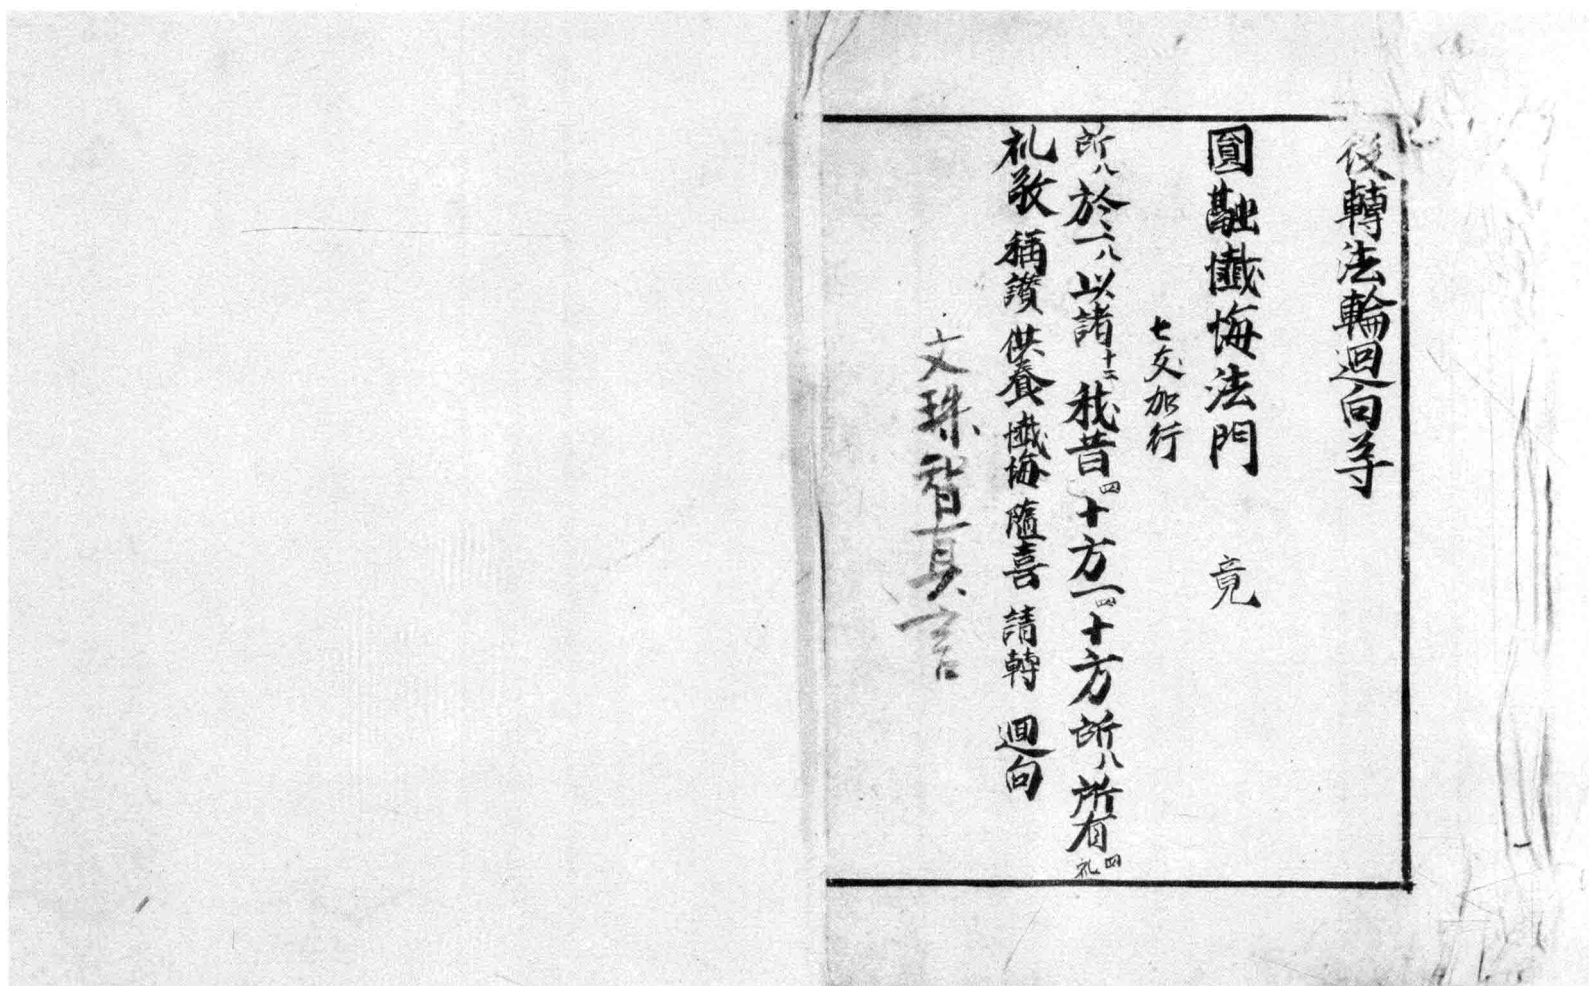 後轉法輪迴向等
圓融懺悔法門 竟
七支加行
所八於一八以諸十二我昔四十方一四十方所八所有四礼
礼敬 稱讚 供養 懺悔 隨喜 請轉 迴向
文珠智真言